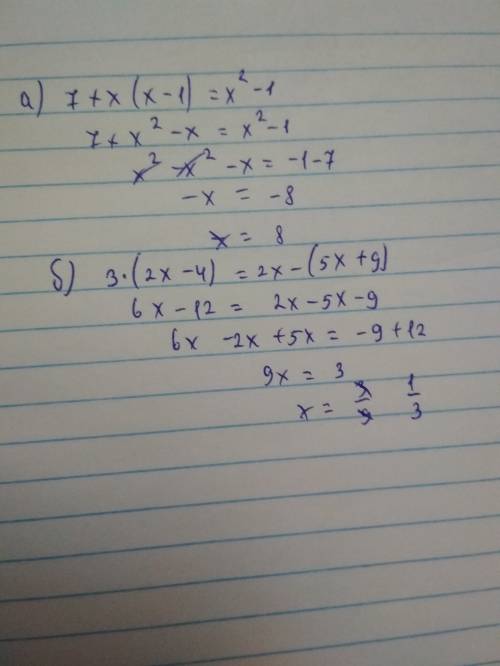 а) 7 + x (x - 1) = x² - 1
7 + x² - x = x² - 1
x² - x² - x = -1 - 7
-x = -8
x = 8
б) 3·(2x - 4) = 2x - (5x + 9)
6x - 12 = 2x - 5x - 9
6x - 2x + 5x = -9 + 12
9x = 3
x = 3/9 1/3